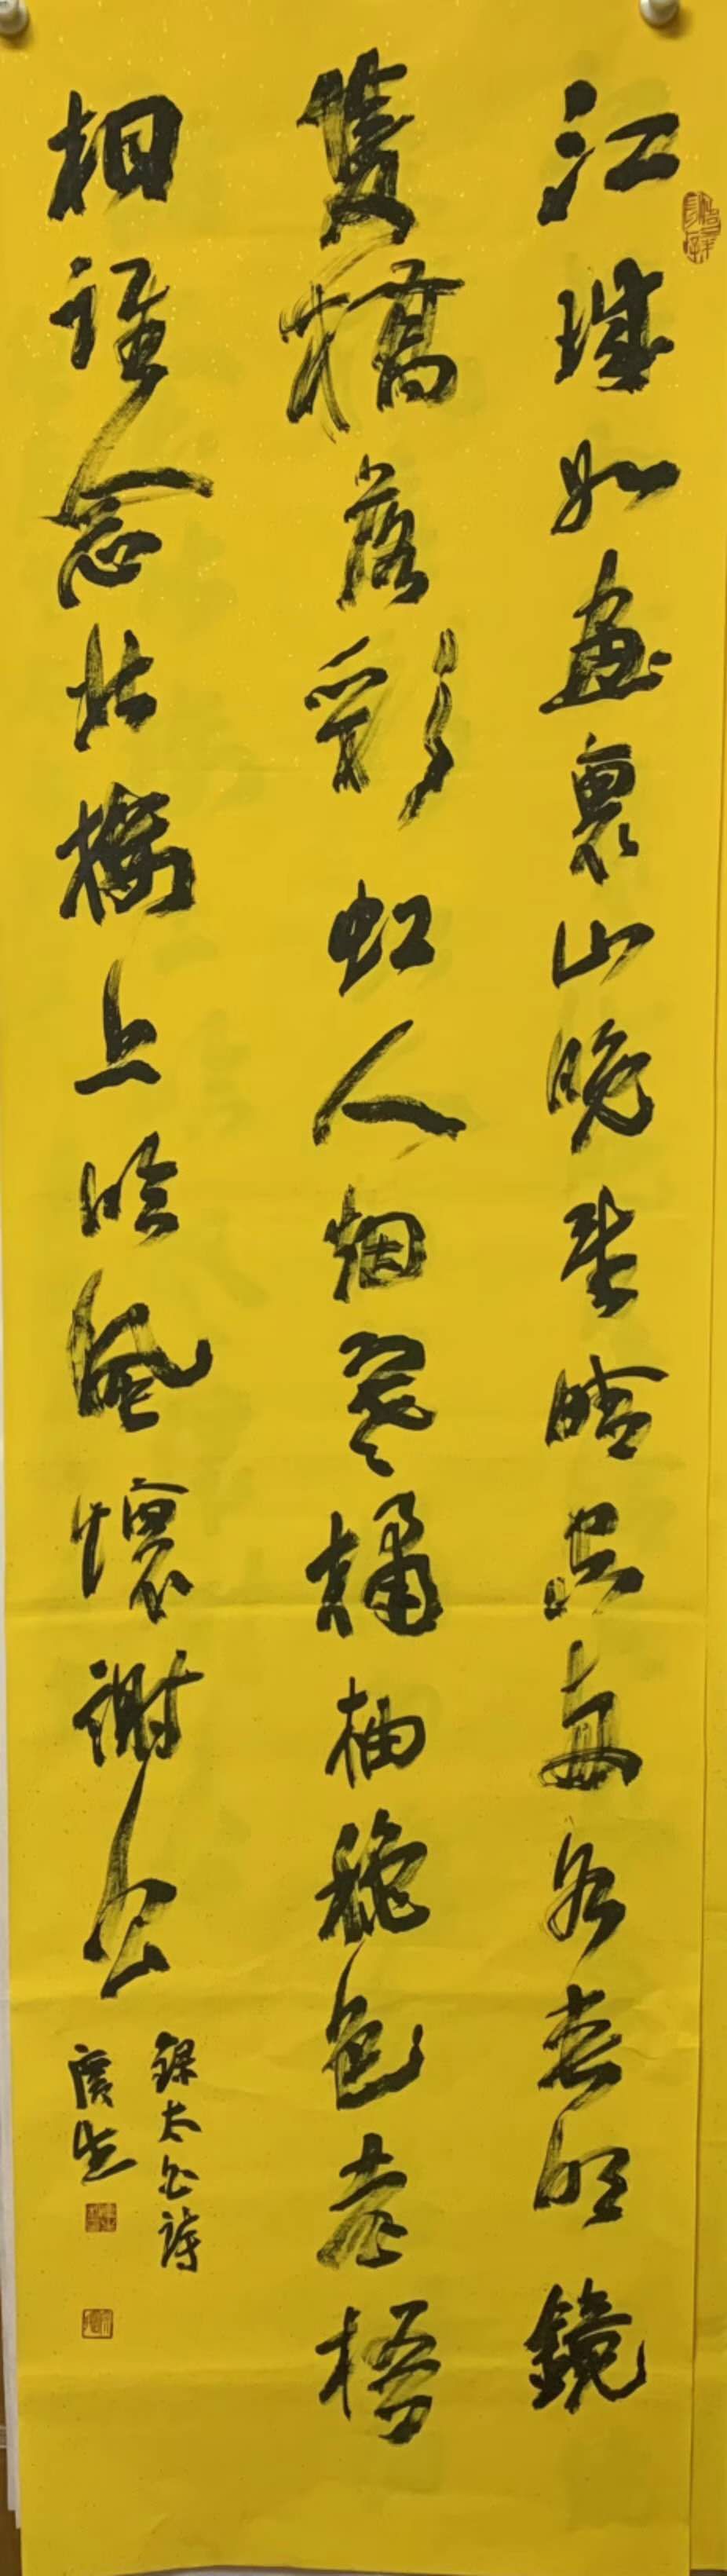 江城如畫裏山晚望晴空兩水夾明鏡
雙橋落彩虹人烟寒橘柚穐色老梧
桐誰念北樓上臨風懷謝公
錄太白詩